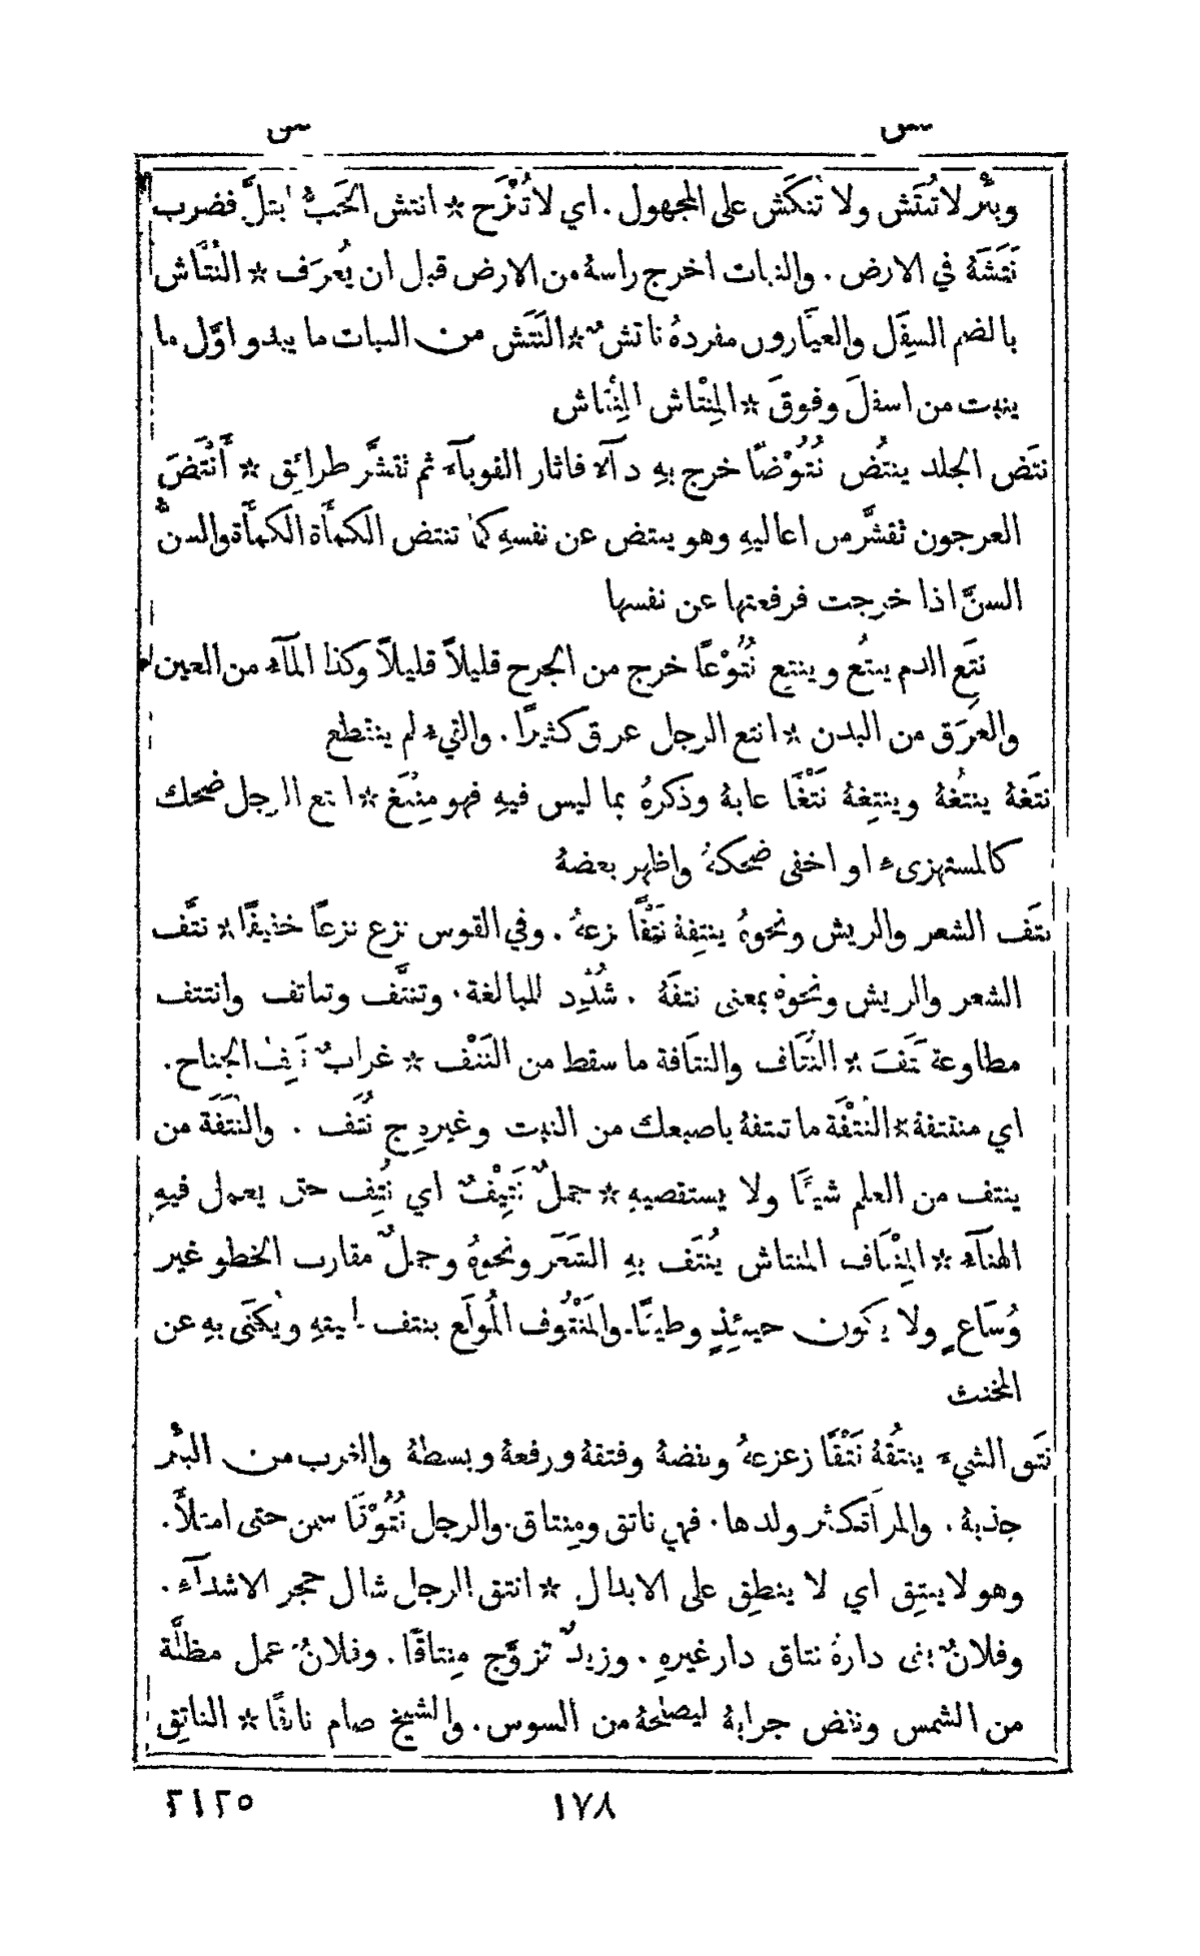 نتش نتش
وبئْر لا تُنتَش ولا تُنكَش على المجهول . اي لا تُنْزَح * انتش الحَبُّ ابتلَّ فضرب
نَتَشَهُ في الارض . والنبات اخرج راسهُ من الارض قبل ان يُعرَف * النُتَّاش
بالضم السِفَل والعيَّارون مفردهُ ناتشٌ * النَتَش من النبات ما يبدو اوَّل ما
ينبت من اسفلَ وفوقَ * المِنْتاش المِنْقاش
نتَض الجلد ينتُض نُتُوْضًا خرج بهِ دآءٌ فاثار القوبآء ثم تقشَّر طرائِق * أَنْتَضَ
العرجون تقشَّر من اعاليهِ وهو ينتض عن نفسهِ كما تنتض الكمأَة الكمأَة والسنُّ
السنَّ اذا خرجت فرفعتها عن نفسها
نتَع الدم ينتُع وينتِع نُتُوْعًا خرج من الجرح قليلاً قليلاً وكذا المآء من العين او
والعَرَق من البدن * انتع الرجل عرق كثيرًا . والقيء لم ينقطع
نتَغهُ ينتُغهُ وينتِغهُ نَتْغًا عابهُ وذكرهُ بما ليس فيهِ فهو مِنْتَغ * انتغ الرجل ضحك
كالمستهزىء او اخفى ضحكهُ واظهر بعضهُ
نتَف الشعر والريش ونحوهُ ينتِفهُ نَتْفًا نزعهُ . وفي القوس نزع نزعًا خفيفًا * نتَّف
الشعر والريش ونحوهُ بمعنى نتفهُ . شُدِّد للمبالغة . وتنتَّف وتناتف وانتتف
مطاوعة نَتَفَ * النُتَاف والنتافة ما سقط من النَتْف * غرابٌ نَتِفُ الجناح .
اي منتتفهُ * النُتْفَة ما تنتفهُ باصبعك من النبت وغيرهِ ج نُتَف . والنُتَفَة من
ينتف من العلم شيئًا ولا يستقصيهِ * جملٌ نَتِيْفٌ اي نُتِف حتى يعمل فيهِ
الهنآء * المِنْتَاف المنتاش يُنتَف بهِ الشَعَر ونحوهُ وجملٌ مقارب الخطو غير
وُسَاعٍ ولا يكون حينئِذٍ وطيئًا . والمَنْتُوف المُولَع بنتف لحيتهِ ويُكنَى بهِ عن
المخنث
نتَق الشيءَ ينتُقهُ نَتْقًا زعزعهُ ونفضهُ وفتقهُ ورفعهُ وبسطهُ والغرب من البئْر
جذبهُ . والمرأَة كثر ولدها . فهي ناتق ومِنتاق . والرجل نُتُوْقًا سمن حتى امتلأَ .
وهو لا ينتِق اي لا ينطِق على الابدال * انتق الرجل شال حجر الاشدآء .
وفلانٌ بنى دارهُ نتاق دار غيرهِ . وزيدٌ تزوَّج مِنتاقًا . وفلانٌ عمل مظلَّة
من الشمس ونفض جرابهُ ليصلحهُ من السوس . والشيخ صام ناتقًا * الناتِق
٢١٢٥ ١٧٨